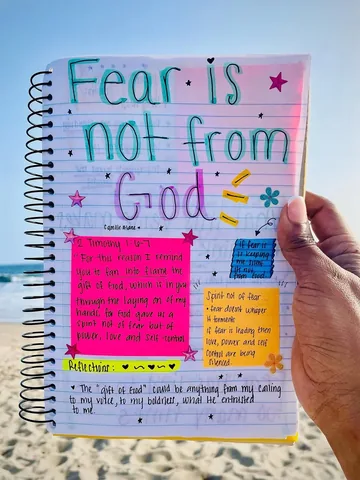 Fear is
not from
God
2 Timothy 1:6-7
"For this reason I remind
you to fan into flame the
gift of God, which is in you
through the laying on of my
hands, for God gave us a
spirit not of fear but of
power, love and self-control.
if fear is
keeping me
it is not
from God
Spirit not of fear
• fear doesn't whisper
it torments
if fear is leading then
love, power and self
control are being
silenced
Reflections:
The "gift of God" could be anything from my calling
to my voice, to my boldness, what He entrusted
to me.